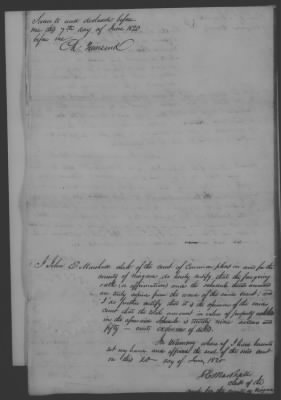 Sworn to and declared before
me this 7th day of June 1820
before me
Townsend
I John E. Marshall clerk of the court of Common pleas in and for the
county of Niagara do hereby certify that the foregoing
oath (or affirmation) and the schedule thereto annexed
are truly copied from the record of the said court, and
I do further certify that it is the opinion of the said
court that the total amount in value of property exhibited
in the aforesaid schedule is twenty nine dollars and
fifty cents exclusive of debts.
In testimony whereof I have hereunto
set my hand and affixed the seal of the said court
on this day of June, 1820
J E Marshall
clerk of the
court for the county of Niagara